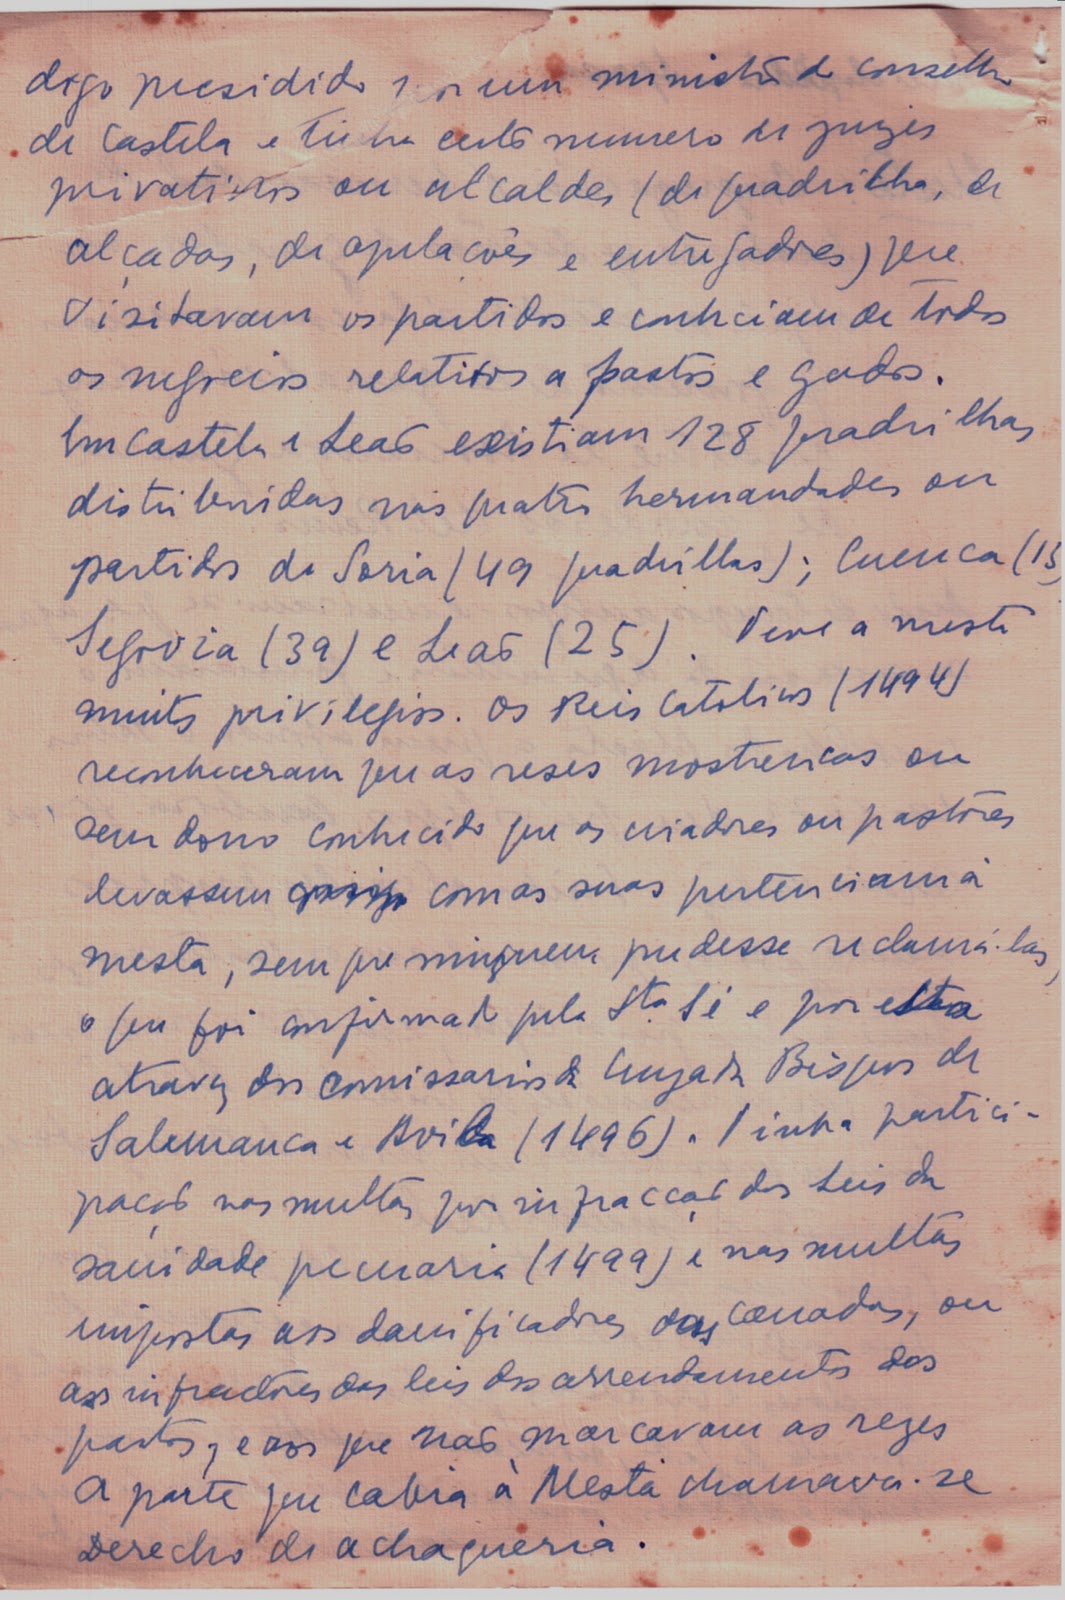 digo presidido por um ministro do conselho
de Castela e tinha certo numero de juizes
privativos ou alcaldes (de quadrilha, de
alçadas, de apelacões e entregadores) que
visitavam os partidos e conheciam de todos
os negocios relativos a pastos e gados.
Em Castela e Leão existiam 128 quadrilhas
distribuidas nas quatro hermandades ou
partidos de Soria (49 quadrillas); Cuenca (15)
Segovia (39) e Leão (25). Teve a mesta
muitos privilegios. Os Reis Catolicos (1494)
reconheceram que as reses mostrencas ou
sem dono conhecido que os criadores ou pastores
levassem com as suas pertenciam á
mesta, sem que ninguem pudesse reclamá-las,
o que foi confirmado pela Sta. Sé e por esta
atravez dos comissarios da Cruzada Bispos de
Salamanca e Avila (1496). Tinha partici-
pação nas multas por infracção das Leis da
sanidade pecuaria (1499) e nas multas
impostas aos danificadores das canadas, ou
aos infractores das leis dos arrendamentos dos
pastos, e aos que não marcavam as rezes
A parte que cabia à Mesta chamava-se
Derecho de achaqueria.